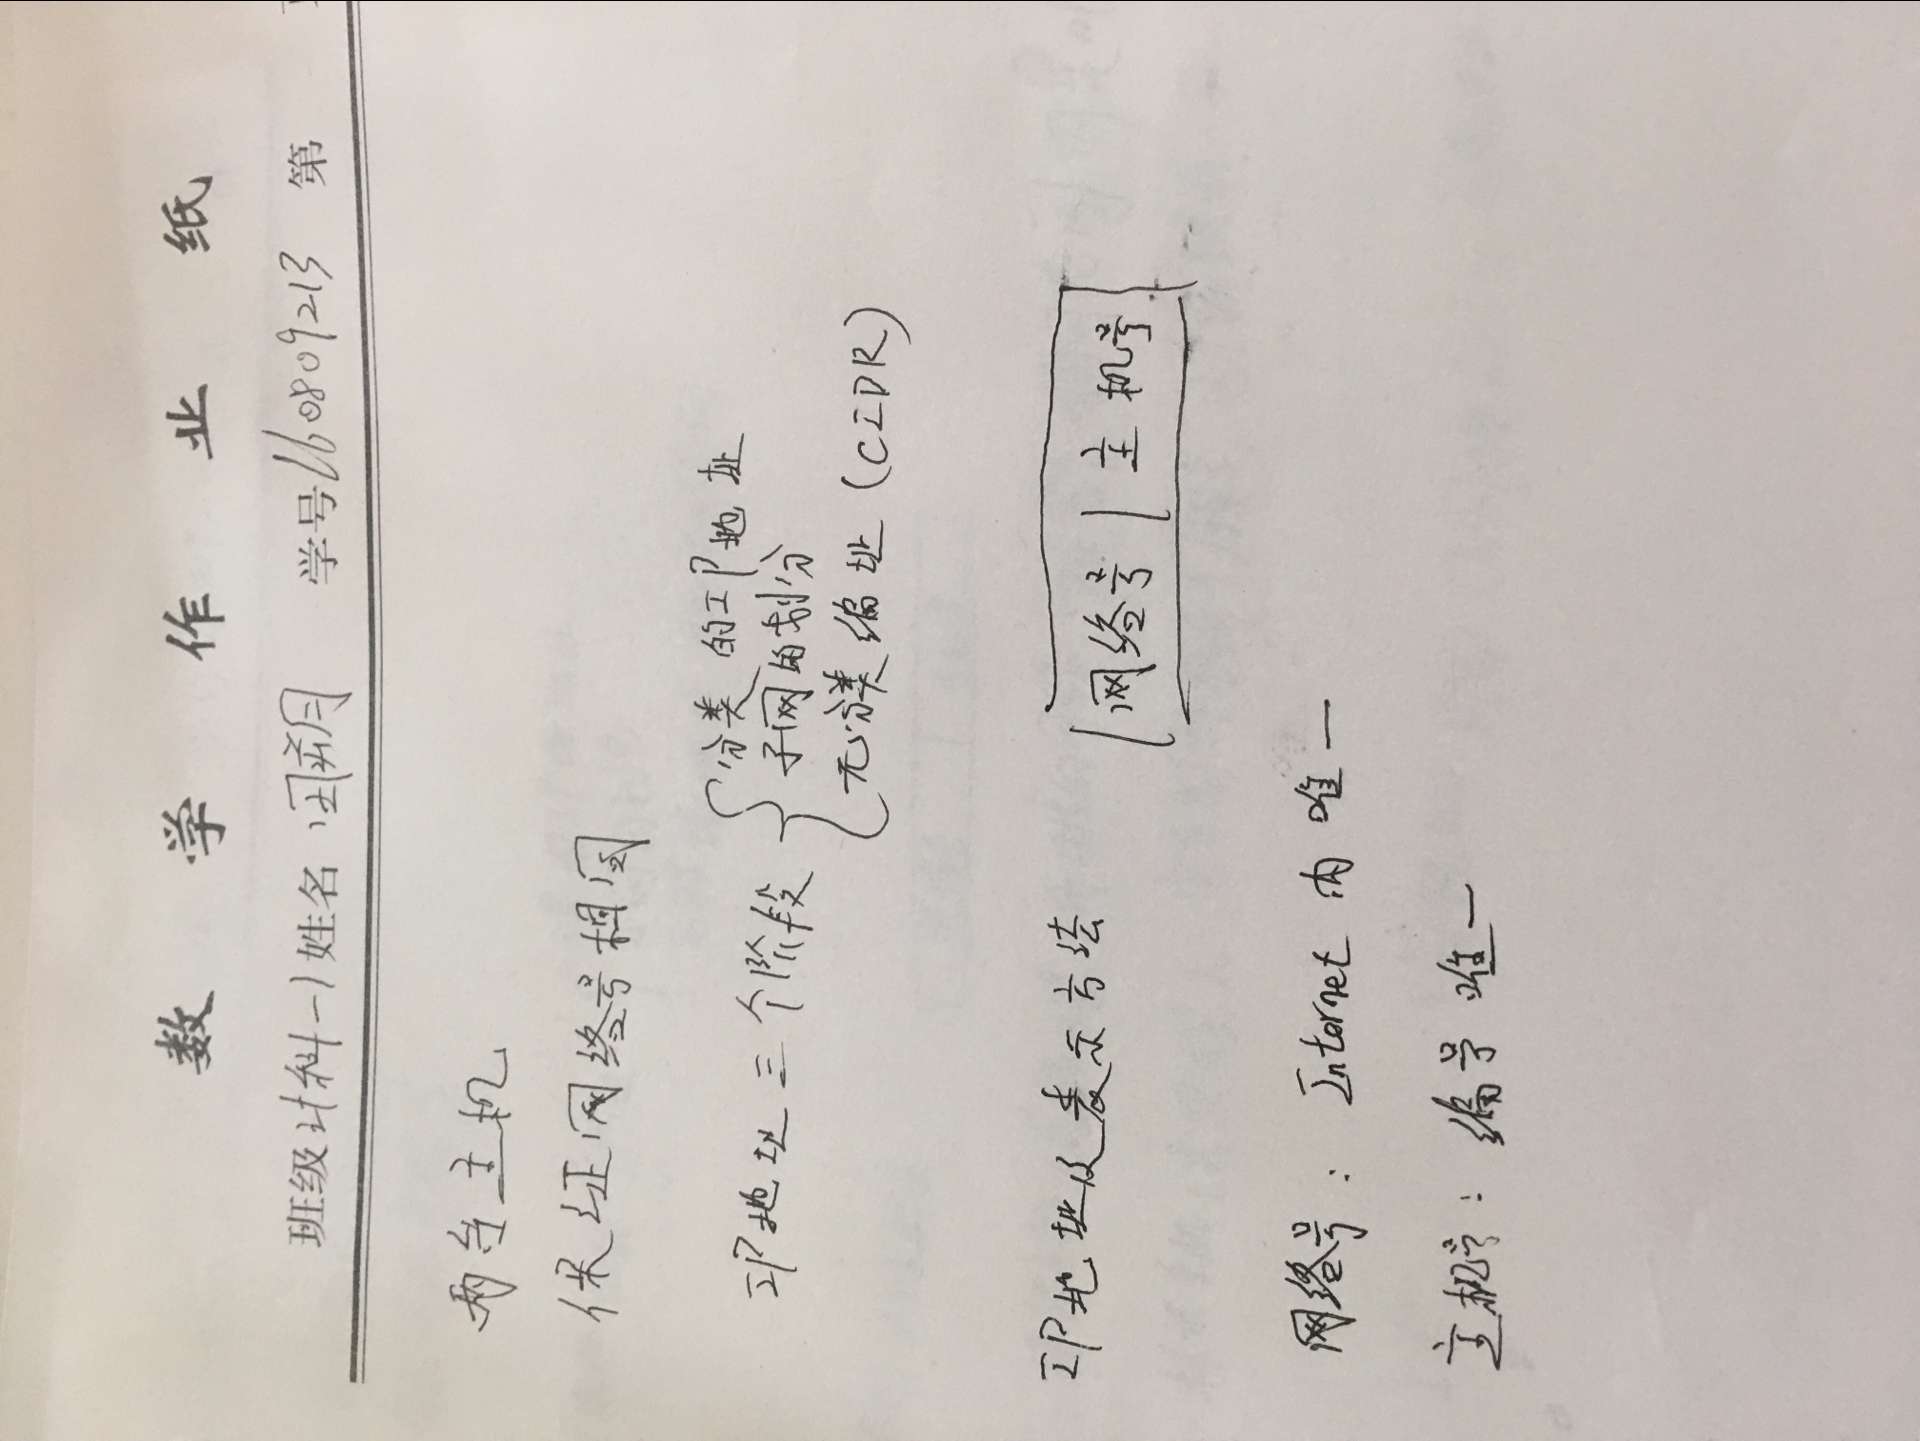 数学作业纸
班级计科-1姓名 学号160809213 第
两台主机
保证网络号相同
IP地址三个阶段
分类的IP地址
子网的划分
无分类编址(CIDR)
IP地址及表示方法
网络号 主机号
网络号：Internet内唯一
主机号：编号唯一